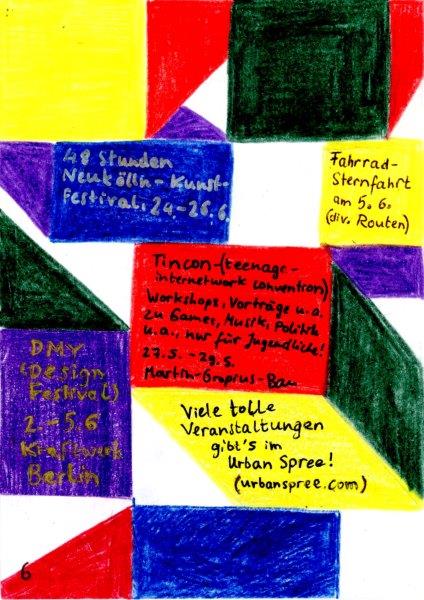 48 Stunden
Neukölln-Kunst-
Festival, 24.-26.6.
Fahrrad-
Sternfahrt
am 5.6.
(div. Routen)
Tincon-(teenage-
internetwork convention)
Workshops, Vorträge u.a.
zu Games, Musik, Politik
u.a., nur für Jugendliche!
27.5. - 29.5.
Martin-Gropius-Bau
DMY
(Design
Festival)
2.-5.6
Kraftwerk
Berlin
Viele tolle
Veranstaltungen
gibt's im
Urban Spree!
(urbanspree.com)
6